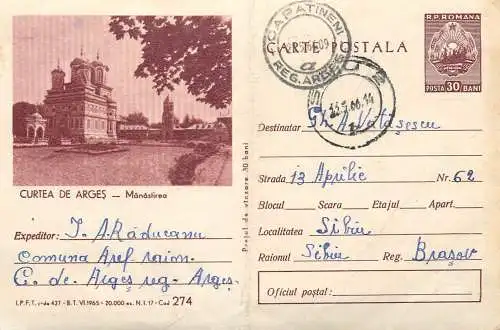 CURTEA DE ARGEȘ — Mănăstirea
Expeditor: I. A. Răducanu
Comuna Aref raion.
C. de Argeș reg. Argeș
I.P.F.T. c-da 437 - B.T. VI.1965 - 20.000 ex. N.I. 17 - Cod 274
Prețul de vînzare 30 bani
CĂPĂȚINENI
REG. ARGEȘ
a
CARTE POȘTALA
SIBIU 2
R.P. ROMÂNA
POSTA 30 BANI
Destinatar Gh. A. Vătășescu
Strada 13 Aprilie Nr. 62
Blocul Scara Etajul Apart.
Localitatea Sibiu
Raionul Sibiu Reg. Brașov
Oficiul poștal: